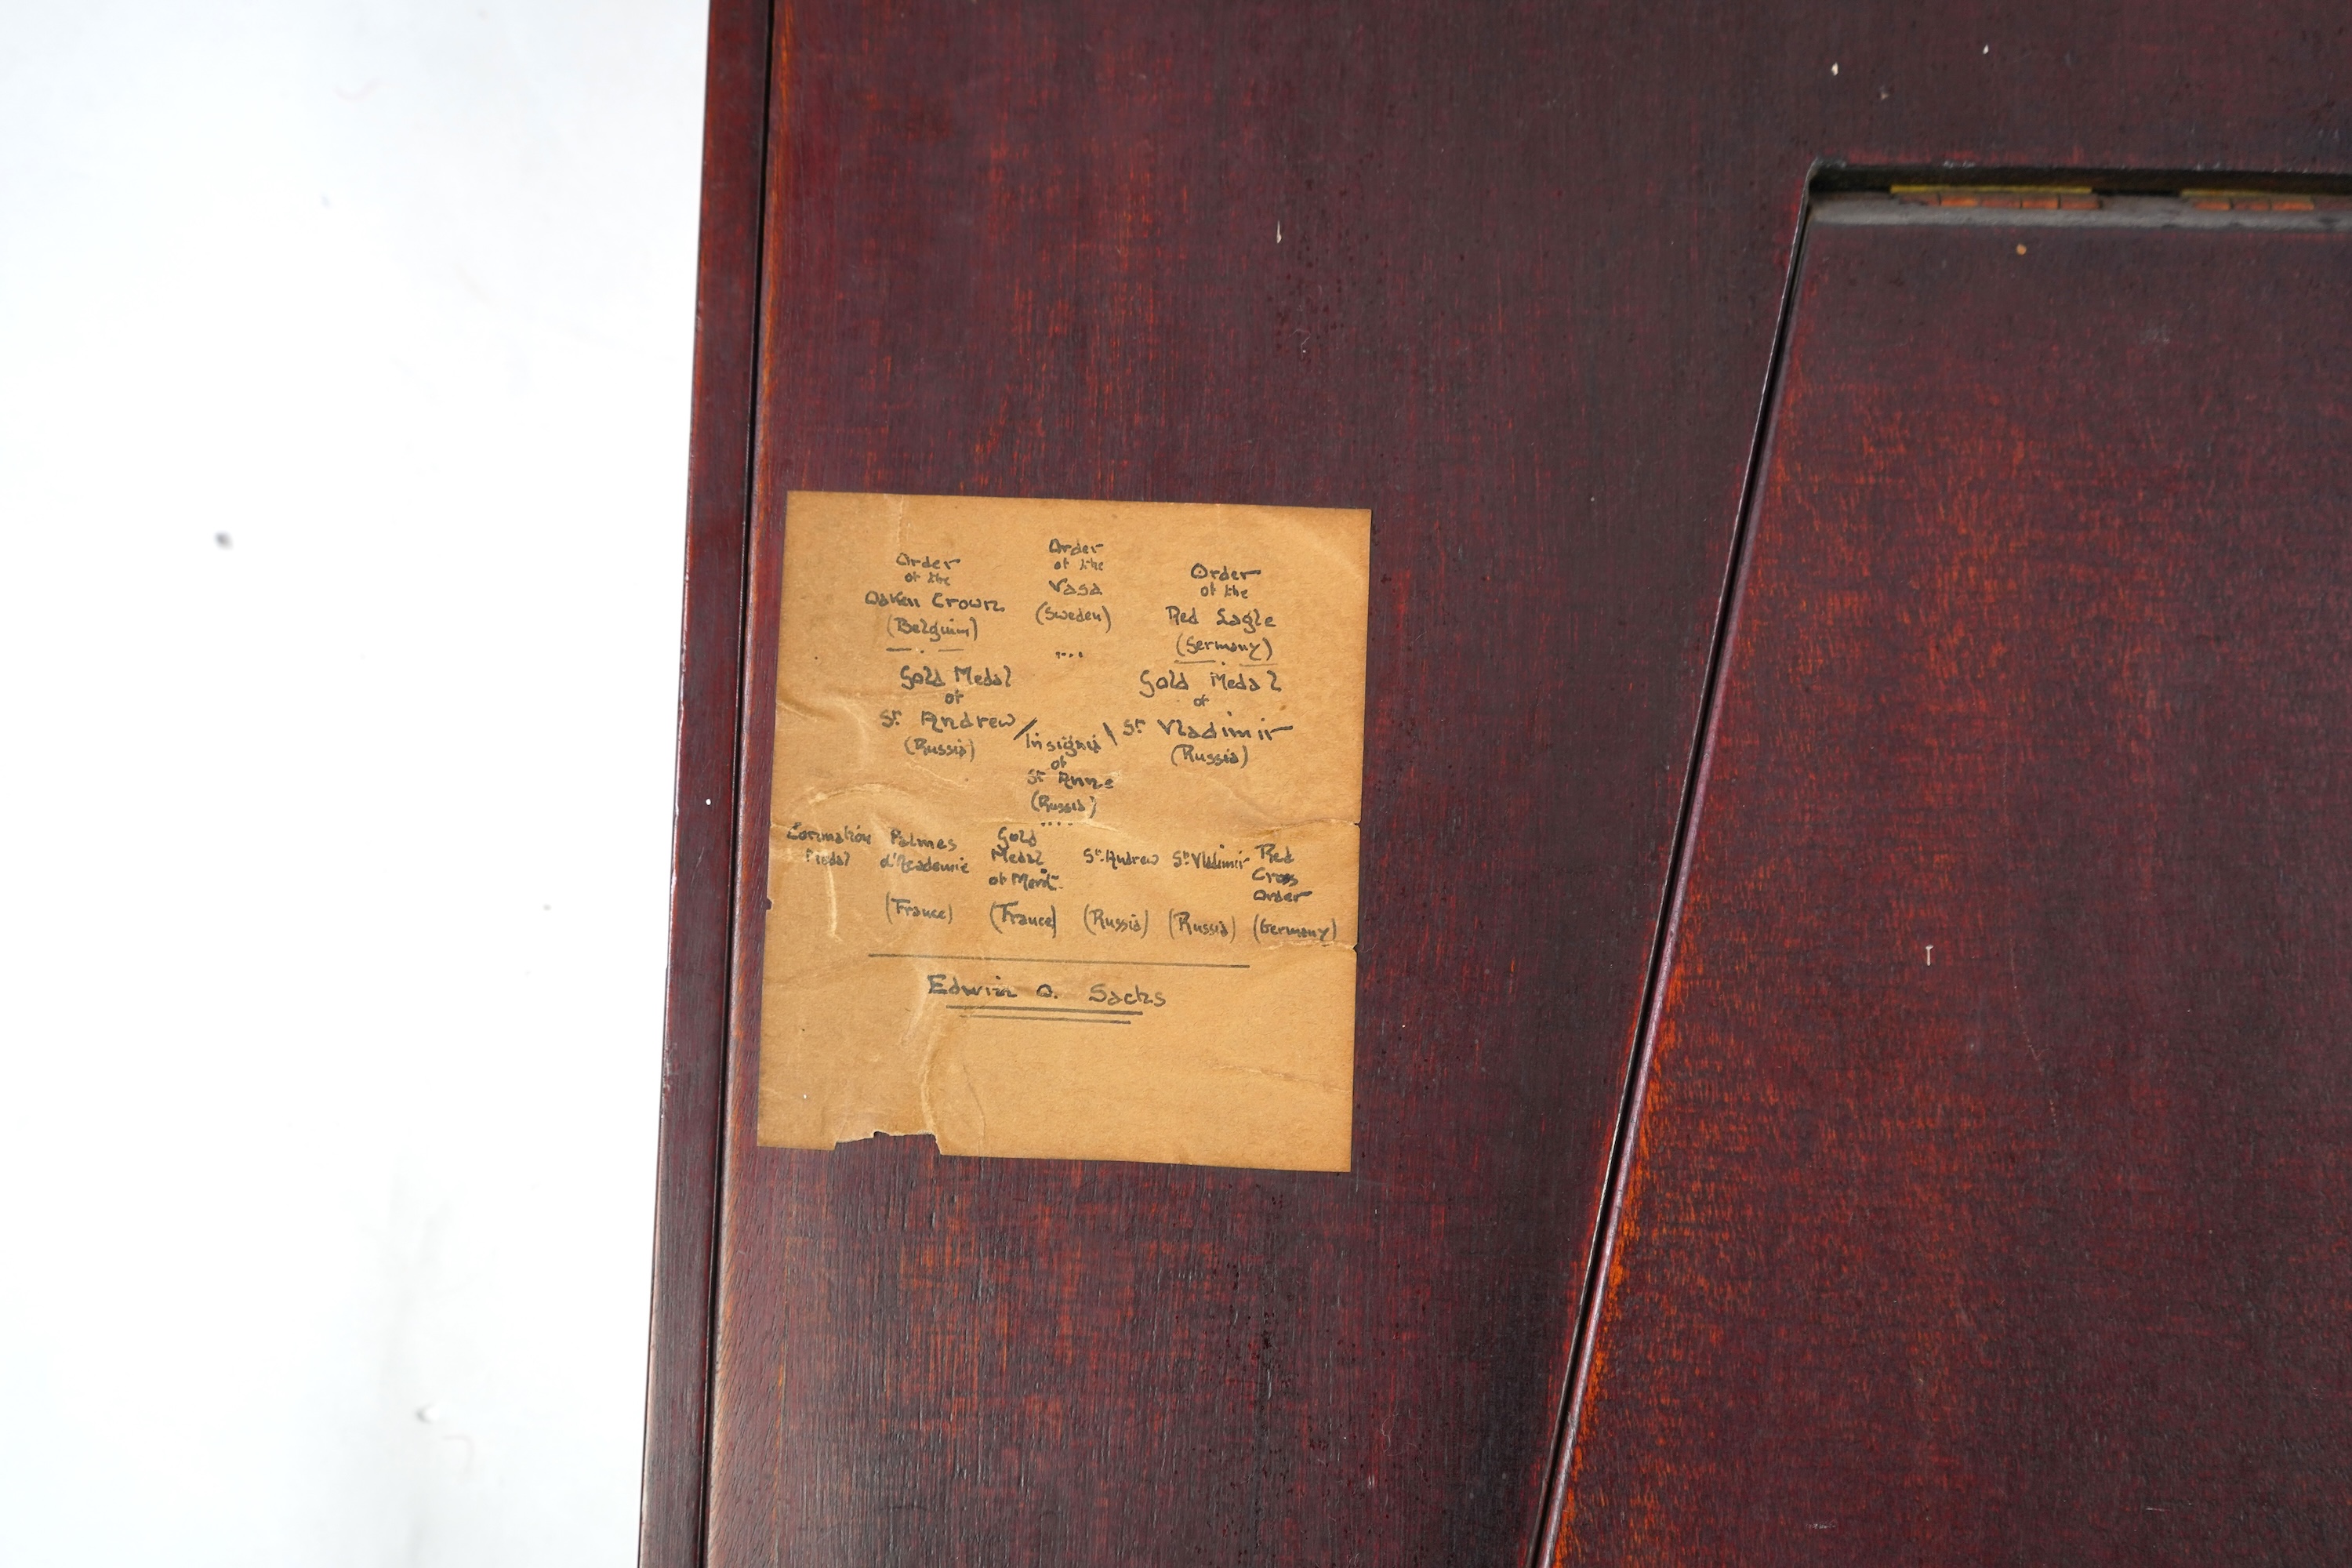 Order
of the
Oaken Crown
(Belguim)
Order
of the
Vasa
(Sweden)
Order
of the
Red Eagle
(Germany)
Gold Medal
of
St. Andrew
(Russia)
Insignia
of
St Anne
(Russia)
Gold Medal
of
St Vladimir
(Russia)
Coronation
Medal
Palmes
d'Academie
(France)
Gold
Medal
of Merit.
(France)
St. Andrew
(Russia)
St. Vladimir
(Russia)
Red
Cross
Order
(Germany)
Edwin O. Sachs